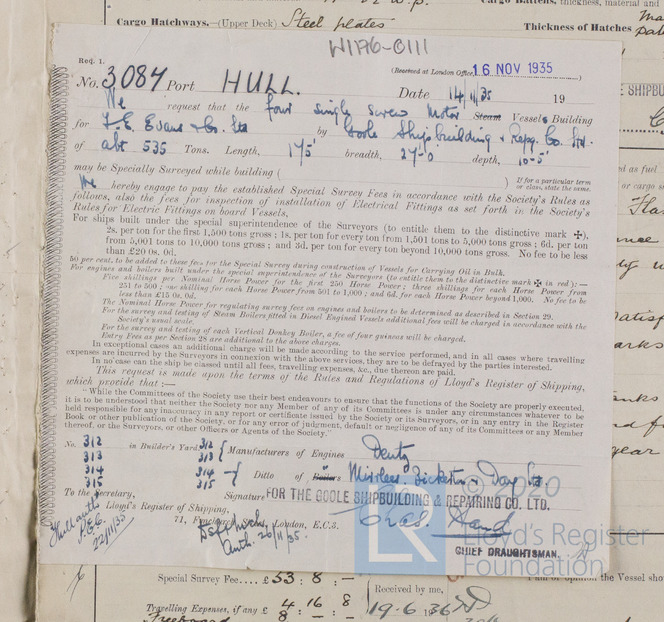 Cargo Hatchways,—(Upper Deck) Steel plates
Thickness of Hatches
W176-0111
Req. 1.
(Received at London Office, 16 NOV 1935)
No. 3084 Port HULL. Date 14/11/35 19
We request that the four single screw Motor Steam Vessels Building
for T.E. Evans & Co. Ltd by Goole Shipbuilding & Repg. Co. Ltd.
of abt 535 Tons. Length, 175' breadth, 27'-0 depth, 10-5'
may be Specially Surveyed while building ( ) If for a particular term or class, state the same.
We hereby engage to pay the established Special Survey Fees in accordance with the Society's Rules as
follows, also the fees for inspection of installation of Electrical Fittings as set forth in the Society's
Rules for Electric Fittings on board Vessels,
For ships built under the special superintendence of the Surveyors (to entitle them to the distinctive mark ✠).
2s. per ton for the first 1,500 tons gross; 1s. per ton for every ton from 1,501 tons to 5,000 tons gross; 6d. per ton
from 5,001 tons to 10,000 tons gross; and 3d. per ton for every ton beyond 10,000 tons gross. No fee to be less
than £20 0s. 0d.
50 per cent. to be added to these fees for the Special Survey during construction of Vessels for Carrying Oil in Bulk.
For engines and boilers built under the special superintendence of the Surveyors (to entitle them to the distinctive mark ✠ in red):—
Five shillings per Nominal Horse Power for the first 250 Horse Power; three shillings for each Horse Power from
251 to 500; one shilling for each Horse Power from 501 to 1,000; and 6d. for each Horse Power beyond 1,000. No fee to be
less than £15 0s. 0d.
The Nominal Horse Power for regulating survey fees on engines and boilers to be determined as described in Section 29.
For the survey and testing of Steam Boilers fitted in Diesel Engined Vessels additional fees will be charged in accordance with the
Society's usual scale.
For the survey and testing of each Vertical Donkey Boiler, a fee of four guineas will be charged.
Entry Fees as per Section 28 are additional to the above charges.
In exceptional cases an additional charge will be made according to the service performed, and in all cases where travelling
expenses are incurred by the Surveyors in connexion with the above services, they are to be defrayed by the parties interested.
In no case can the ship be classed until all fees, travelling expenses, &c., due thereon are paid.
This request is made upon the terms of the Rules and Regulations of Lloyd's Register of Shipping,
which provide that :—
"While the Committees of the Society use their best endeavours to ensure that the functions of the Society are properly executed,
it is to be understood that neither the Society nor any Member of any of its Committees is under any circumstances whatever to be
held responsible for any inaccuracy in any report or certificate issued by the Society or its Surveyors, or in any entry in the Register
Book or other publication of the Society, or for any error of judgment, default or negligence of any of its Committees or any Member
thereof, or the Surveyors, or other Officers or Agents of the Society."
No. 312 in Builder's Yard 312 Manufacturers of Engines Deutz
313 313
314 314 Ditto of Boilers Mirrlees, Bickerton & Day Ltd.
315 315
To the Secretary, Signature FOR THE GOOLE SHIPBUILDING & REPAIRING CO. LTD.
Lloyd's Register of Shipping,
71, London, E.C.3.
Chas. Hand
CHIEF DRAUGHTSMAN.
22/11/35
Auth. 20/11/35.
© 2020
LR Lloyd's Register
Foundation
Special Survey Fee.... £ 53 : 8 : –
Travelling Expenses, if any £ 4 : 16 : 8
Freeboard 8 : – : –
Received by me,
19.6.1936